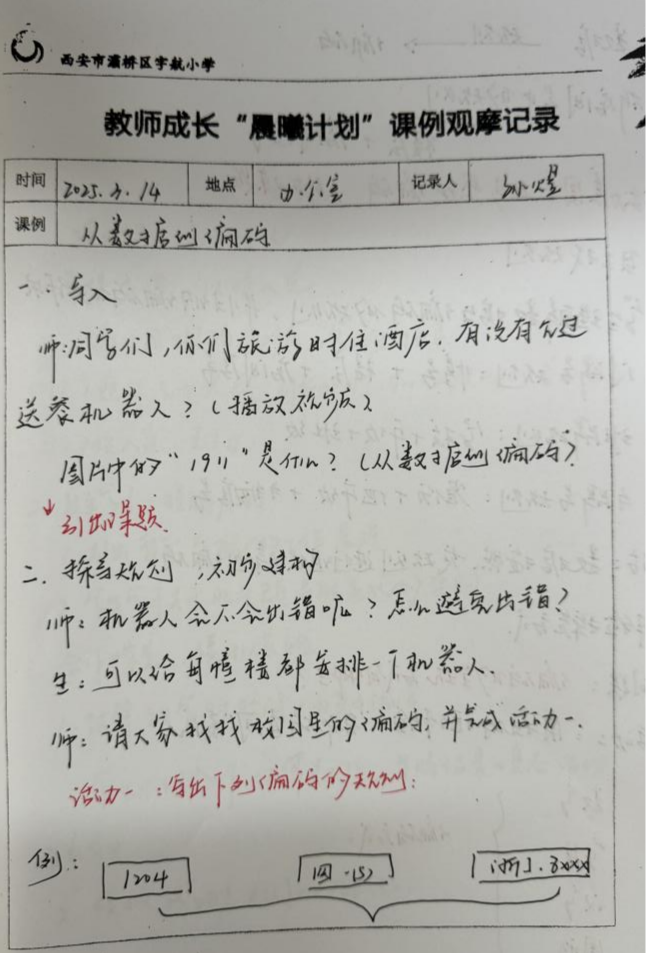 西安市灞桥区宇航小学
教师成长“晨曦计划”课例观摩记录
时间 2025.3.14 地点 办公室 记录人 孙煜
课例 从数据到编码
一. 导入
师:同学们,你们旅游时住酒店,有没有见过
送餐机器人?(播放视频)
图片中的“1911”是什么?(从数据到编码)
引出课题
二. 探寻规则,初步建构
师:机器人会不会出错呢?怎么避免出错?
生:可以给每幢楼都安排一个机器人.
师:请大家找找校园里的编码,并完成活动一.
活动一:写出下列编码的规则:
例: 1204 四.(5) 浙J.8xxx